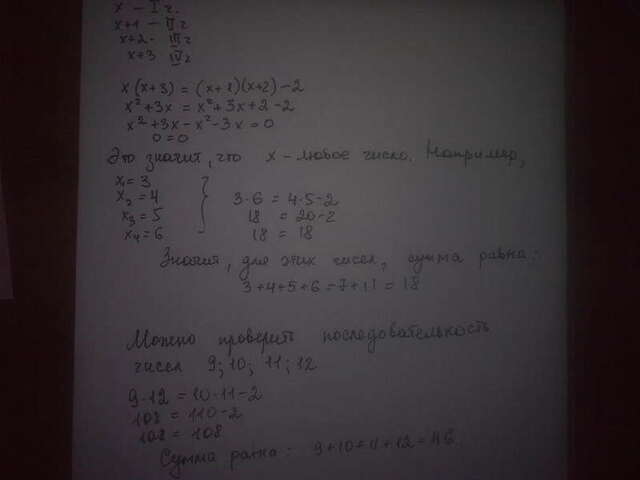 x - I ч.
x+1 - II ч
x+2 - III ч
x+3 IV ч
x(x+3) = (x+1)(x+2)-2
x²+3x = x²+3x+2-2
x²+3x-x²-3x=0
0=0
Это значит, что x - любое число. Например,
x₁=3
x₂=4 3·6 = 4·5-2
x₃=5 18 = 20-2
x₄=6 18 = 18
Значит, для этих чисел, сумма равна:
3+4+5+6=7+11=18
Можно проверить последовательность
чисел 9; 10; 11; 12
9·12=10·11-2
108=110-2
108=108
Сумма равна: 9+10+11+12=46